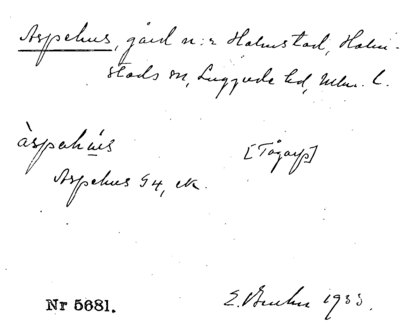 Aspehus, gård n:r Halmstad, Halm-
stads sn, Luggude hd, Mlm. l.
àspahús [Tågarp]
Aspehus G4, ek.
Nr 5681. E. Bruhn 1933